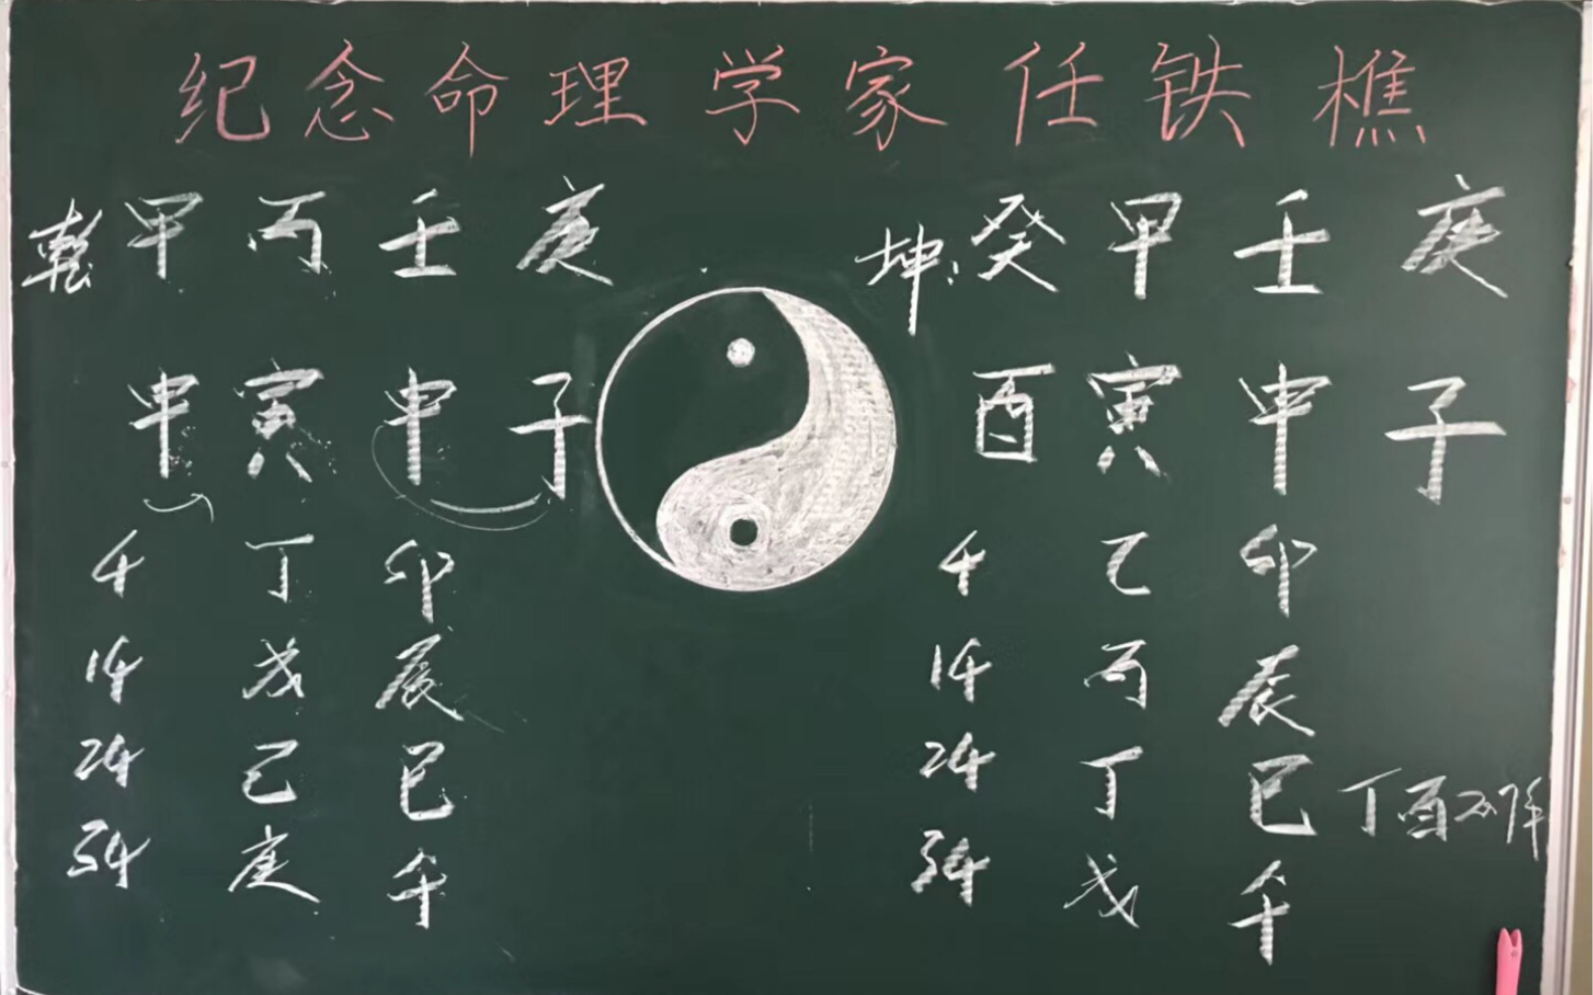 纪念命理学家任铁樵
乾 甲 丙 壬 庚
申 寅 申 子
4 丁 卯
14 戊 辰
24 己 巳
34 庚 午
坤: 癸 甲 壬 庚
酉 寅 申 子
4 乙 卯
14 丙 辰
24 丁 巳 丁酉2017年
34 戊 午